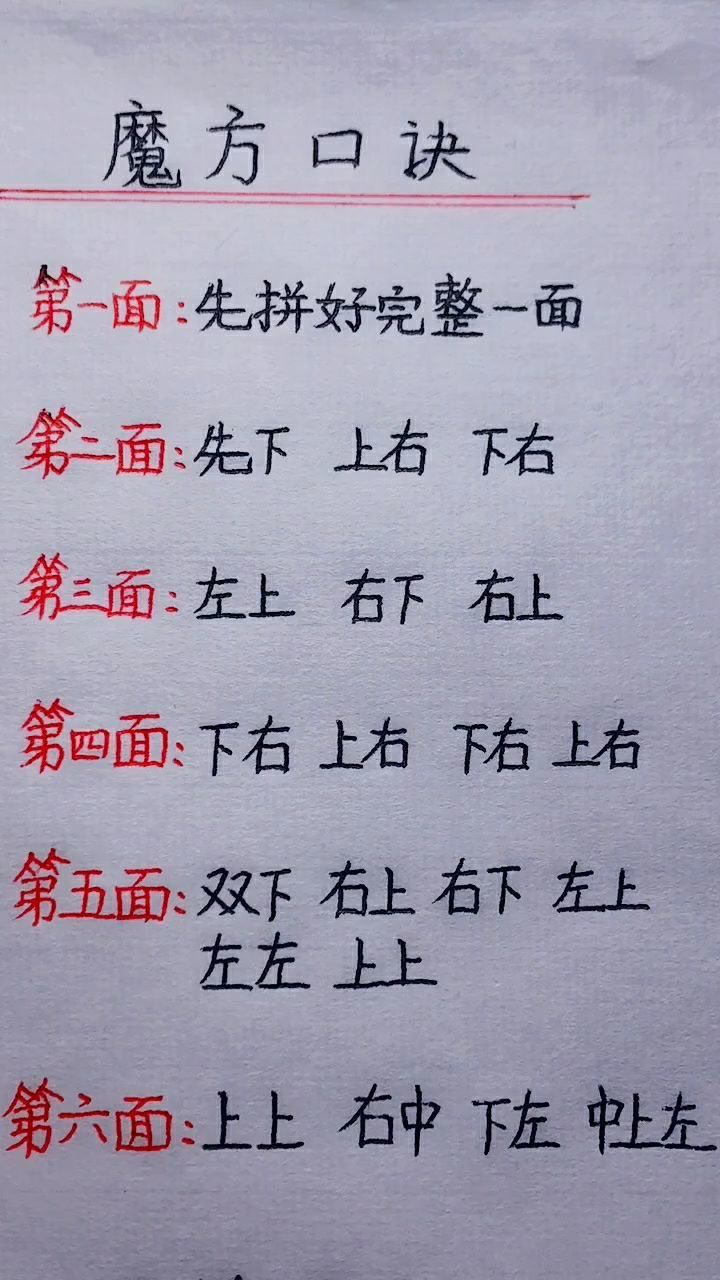 魔方口诀
第一面:先拼好完整一面
第二面:先下 上右 下右
第三面:左上 右下 右上
第四面:下右 上右 下右 上右
第五面:双下 右上 右下 左上
左左 上上
第六面:上上 右中 下左 中上左